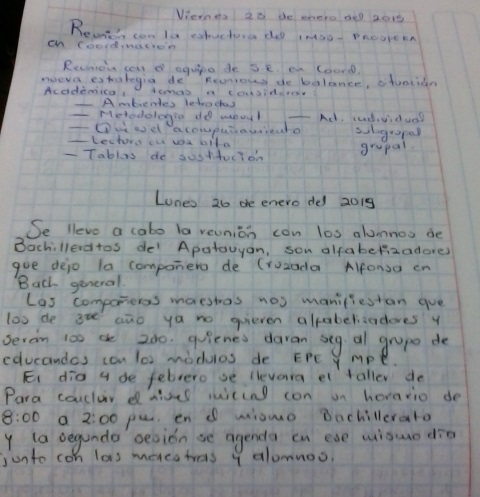 Viernes 23 de enero del 2015
Reunión con la estructura del IMSS-PROSPERA
en Coordinación
Reunión con el equipo de S.E. en Coord.
nueva estrategia de Reuniones de balance, situación
Académica, temas a considerar:
— Ambientes letrados
— Metodología del mevyt — Act. individual
— Qué es el acompañamiento subgrupal
— Lectura en voz alta grupal.
— Tablas de sustitución
Lunes 26 de enero del 2015
Se llevo a cabo la reunión con los alumnos de
Bachilleratos de Apatauyan, son alfabetizadores
que dejo la compañera de Cruzada Alfonsa en
Bach general.
Las compañeras maestras nos manifiestan que
los de 3er año ya no quieren alfabetizadores y
serán los de 2do. quienes daran seg. al grupo de
educandos con los módulos de EPE y MPE.
El día 4 de febrero se llevara el taller de
Para concluir el nivel inicial con un horario de
8:00 a 2:00 pm. en el mismo Bachillerato
y la segunda sesión se agenda en ese mismo día
junto con las maestras y alumnos.